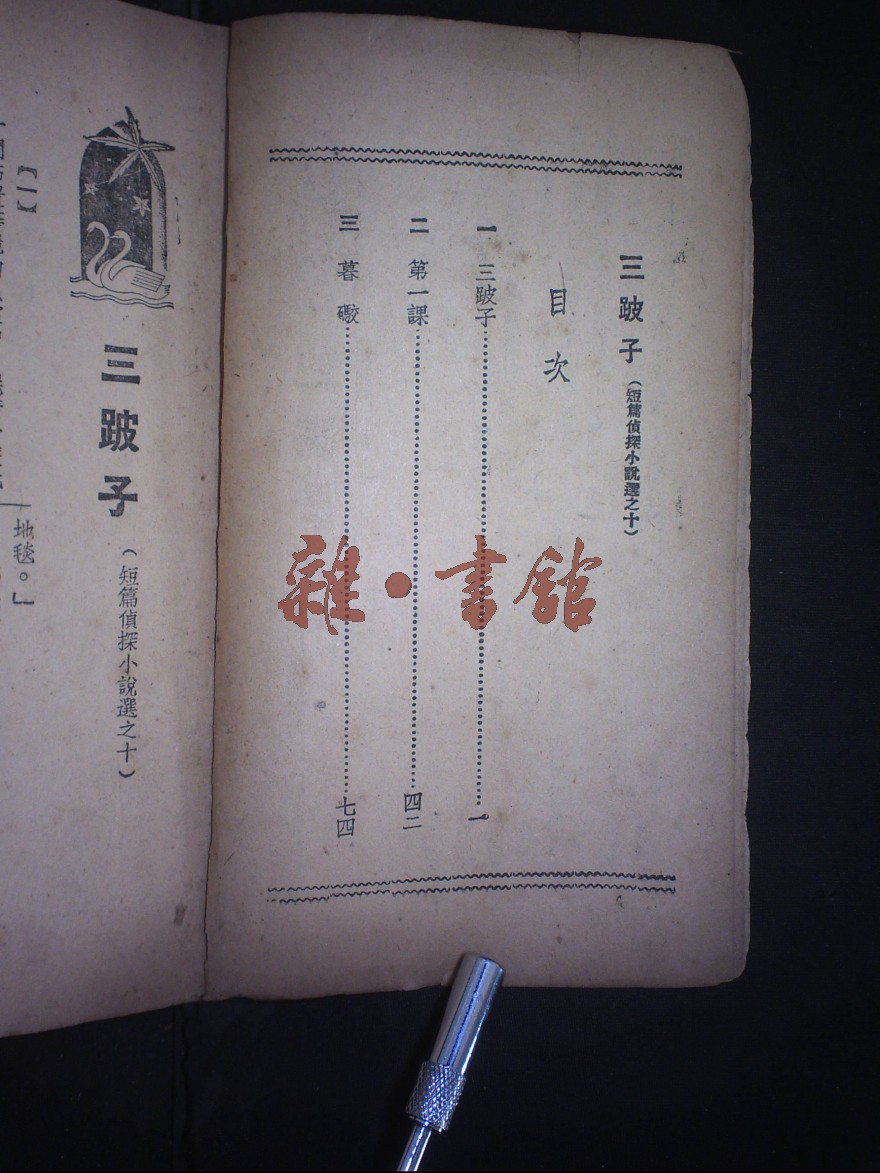 三跛子（短篇偵探小說選之十）
目次
一 三跛子 一
二 第一課 四二
三 暮礮 七四
雜·書館
三跛子
（短篇偵探小說選之十）
【一】
地毯。」